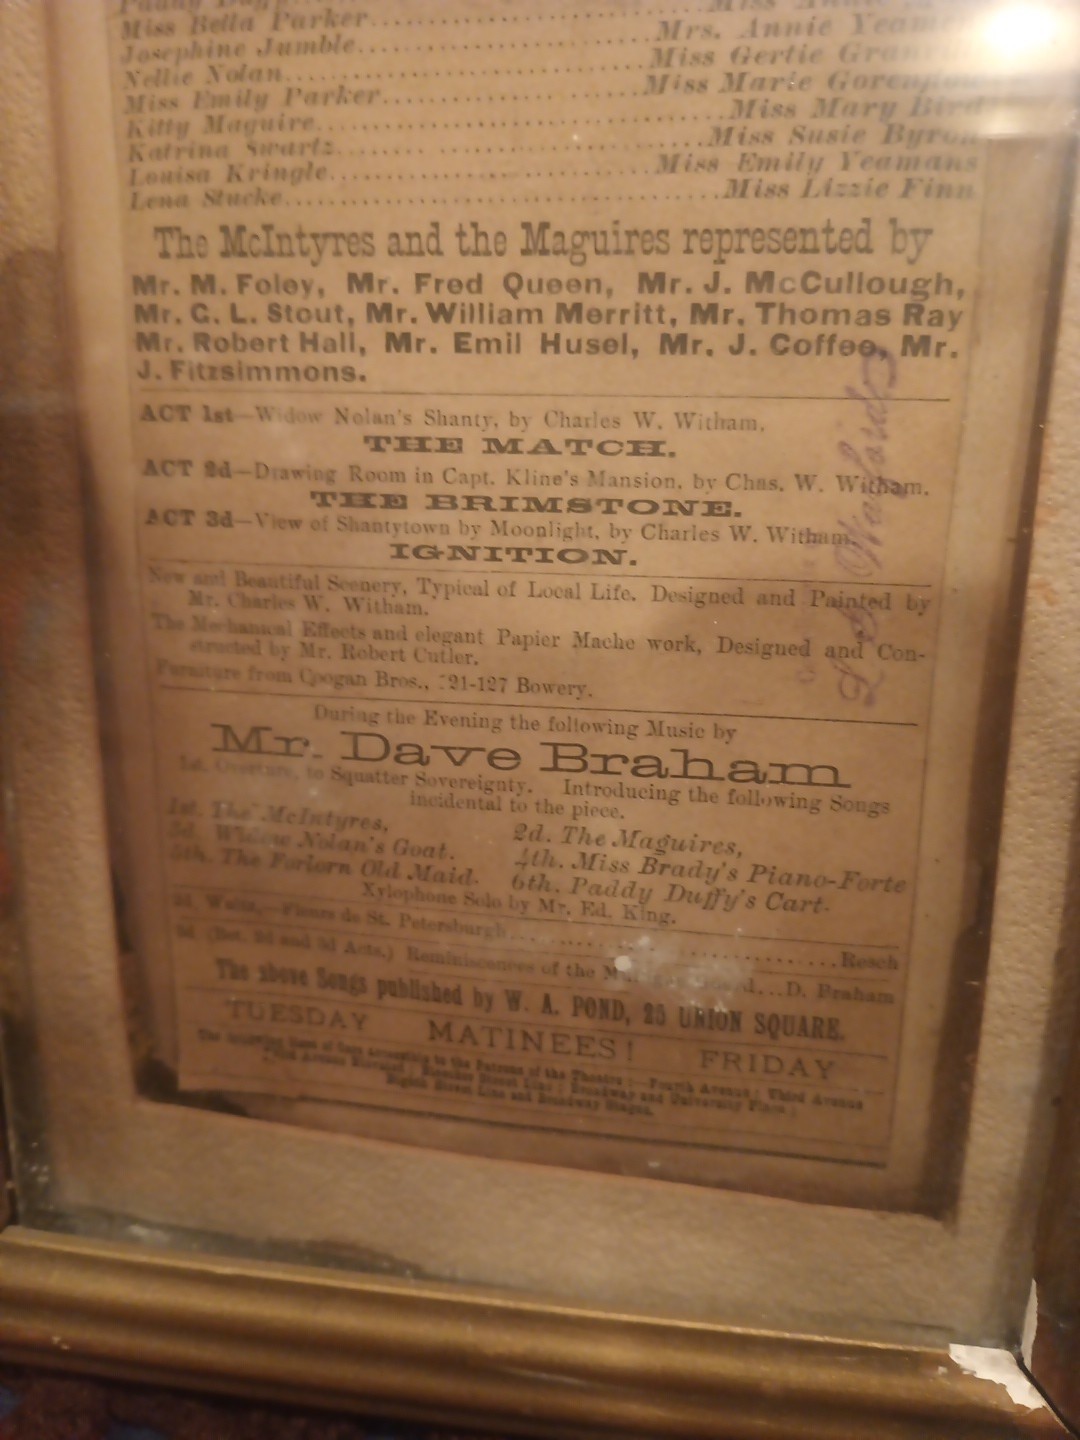 Miss Bella Parker.......... Mrs. Annie
Josephine Jumble.......... Miss Gertie
Nellie Nolan.......... Miss Marie
Miss Emily Parker.......... Miss Mary Bird
Kitty Maguire.......... Miss Susie Byron
Katrina Swartz.......... Miss Emily Yeamans
Louisa Kringle.......... Miss Lizzie Finn
Lena Stucke..........
The McIntyres and the Maguires represented by
Mr. M. Foley, Mr. Fred Queen, Mr. J. McCullough,
Mr. C. L. Stout, Mr. William Merritt, Mr. Thomas Ray
Mr. Robert Hall, Mr. Emil Husel, Mr. J. Coffee, Mr.
J. Fitzsimmons.
ACT 1st—Widow Nolan's Shanty, by Charles W. Witham.
THE MATCH.
ACT 2d—Drawing Room in Capt. Kline's Mansion, by Chas. W. Witham.
THE BRIMSTONE.
ACT 3d—View of Shantytown by Moonlight, by Charles W. Witham.
IGNITION.
New and Beautiful Scenery, Typical of Local Life. Designed and Painted by
Mr. Charles W. Witham.
The Mechanical Effects and elegant Papier Mache work, Designed and Con-
structed by Mr. Robert Cutler.
Furniture from Coogan Bros., 121-127 Bowery.
During the Evening the following Music by
Mr. Dave Braham
1st. Overture, to Squatter Sovereignty. Introducing the following Songs
incidental to the piece.
1st. The McIntyres, 2d. The Maguires,
3d. Widow Nolan's Goat. 4th. Miss Brady's Piano-Forte
5th. The Forlorn Old Maid. 6th. Paddy Duffy's Cart.
Xylophone Solo by Mr. Ed. King.
2d. Waltz,—Fleurs de St. Petersburgh.......... Resch
3d (Bet. 2d and 3d Acts.) Reminiscences of the ...D. Braham
The above Songs published by W. A. POND, 25 UNION SQUARE.
TUESDAY MATINEES! FRIDAY
The following lines of Cars accessible to the Patrons of the Theatre:—Fourth Avenue; Third Avenue
Avenue Elevated; Bleecker Street Line; Broadway and University Place;
Eighth Street Line and Broadway Stages.